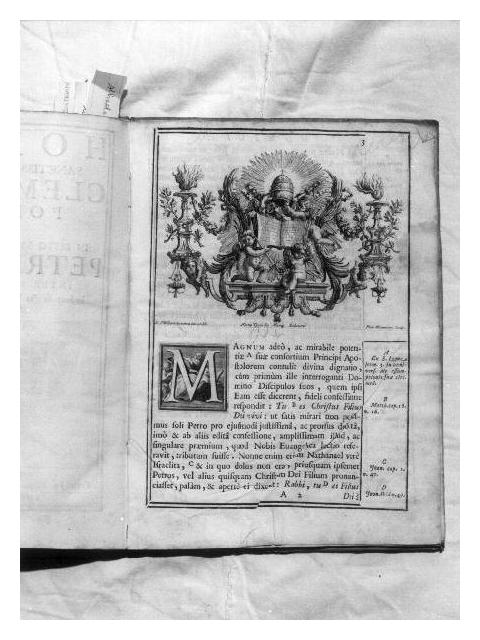 3
MAGNUM adeò, ac mirabile poten-
tiæ A suæ consortium Principi Apo-
stolorum contulit divina dignatio,
cùm primùm ille interroganti Do-
mino Discipulos suos, quem ipsi
Eum esse dicerent, fideli confessione
respondit: Tu B es Christus Filius
Dei vivi: ut satis mirari non possi-
mus soli Petro pro ejusmodi justissimâ, ac prorsus
imò & ab aliis editâ confessione, amplissimum illud, ac
singulare præmium, quod Nobis Evangelica lectio refe-
ravit, tributum fuisse. Nonne enim etiam Nathanael vire
Israelita, C & in quo dolus non erat, priusquam ipsemet
Petrus, vel alius quispiam Christum Dei Filium pronun-
ciasset, palàm, & apertè ei dixit: Rabbi, tu D es Filius
A 2
Dei
A
B
Matth. cap. 16.
n. 16.
C
Joan. cap. 1.
n. 47.
D
HO
SANCTISS
CLEM
PO
PETR